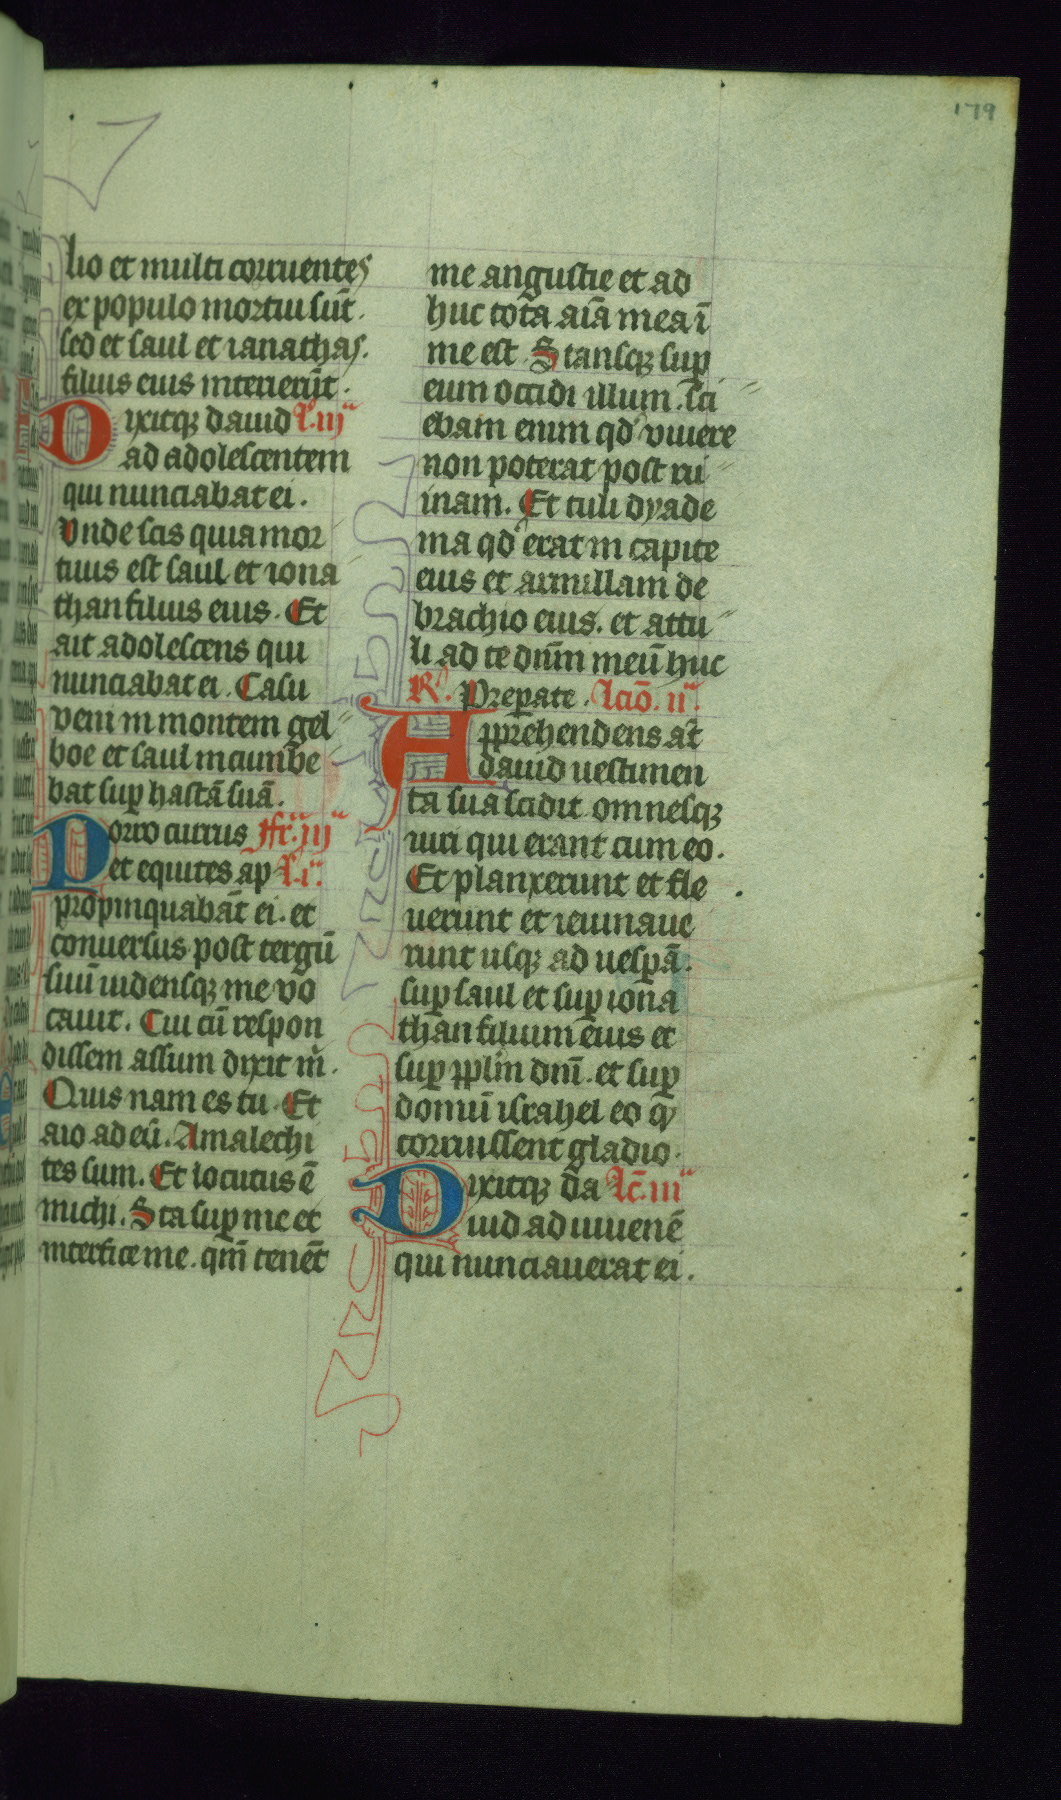 179
lio et multi corruentes
ex populo mortui sūt.
sed et saul et ianathas.
filius eius interierūt.
Dixitqꝫ dauid L'. iijᵃ
ad adolescentem
qui nunciabat ei.
Vnde scis quia mor
tuus est saul et iona
than filius eius. Et
ait adolescens qui
nunciabat ei. Casu
veni in montem gel
boe et saul incumbe
bat suꝑ hastā suā.
Porro currus ffr̄. iijᵃ
et equites ap L'. iᵃ.
propinquabāt ei. et
conuersus post tergū
suū uidensqꝫ me vo
cauit. Cui cū respon
dissem assum dixit m̄.
Quis nam es tu. Et
aio ad eū. Amalechi
tes sum. Et locutus ē
michi. Sta suꝑ me et
interfice me. qm̄ tenēt
me angustie et ad
huc tota aīa mea ī
me est. Stansqꝫ suꝑ
eum occidi illum. Sci
ebam enim qd' viuere
non poterat post ru
inam. Et tuli dyade
ma qd' erat in capite
eius et armillam de
brachio eius. et attu
li ad te dn̄m meū huc
R'. Preꝑate. Lcio. iiᵃ.
Apprehendens aūt
dauid uestimen
ta sua scidit. omnesqꝫ
uiri qui erant cum eo.
Et planxerunt et fle
uerunt et ieiunaue
runt usqꝫ ad uesꝑā.
suꝑ saul et suꝑ iona
than filium eius et
suꝑ pplm̄ dn̄i. et suꝑ
domū israhel eo qꝫ
corruissent gladio.
Dixitqꝫ da Lc̄. iiiᵃ
uid ad iuuenē
qui nunciauerat ei.